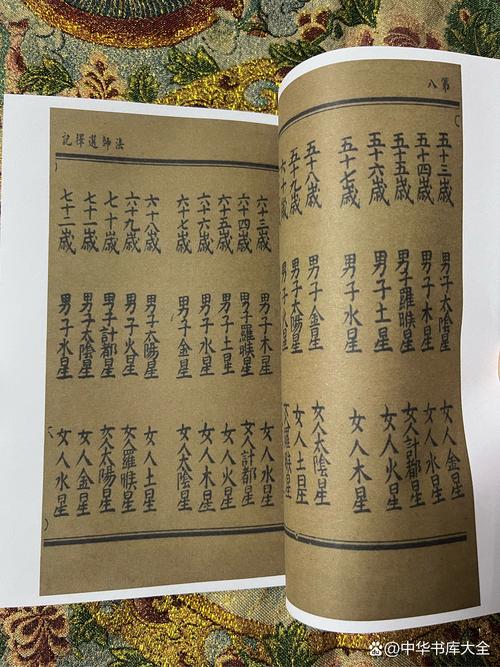 第八
五十三歳 男子太陰星 女人金星
五十四歳 男子木星 女人水星
五十五歳 男子羅睺星 女人計都星
五十六歳 男子土星 女人火星
五十七歳 男子水星 女人木星
五十八歳 男子金星 女人太陰星
五十九歳 男子太陽星 女人土星
六十歳 男子火星 女人羅睺星
法師選擇記
六十三歳 男子木星 女人水星
六十四歳 男子羅睺星 女人計都星
六十五歳 男子土星 女人火星
六十六歳 男子水星 女人木星
六十七歳 男子金星 女人太陰星
六十八歳 男子太陽星 女人土星
六十九歳 男子火星 女人羅睺星
七十歳 男子計都星 女人太陽星
七十一歳 男子太陰星 女人金星
七十二歳 男子水星 女人水星
@中华书库大全